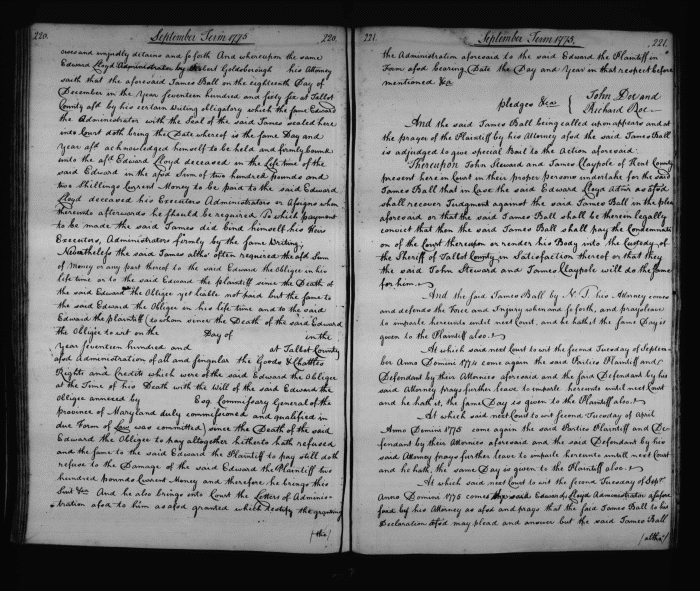 220. September Term 1775 220.
owes and unjustly detains and so forth And whereupon the same
Edward Lloyd Administrator by Robert Goldsborough his Attorney
saith that the aforesaid James Ball on the eighteenth Day of
December in the Year seventeen hundred and sixty six at Talbot
County afsd by his certain Writing obligatory which the same Edward
the Administrator with the Seal of the said James sealed here
into Court doth bring the Date whereof is the same Day and
Year afsd acknowledged himself to be held and firmly bound
unto the afsd Edward Lloyd deceased in the Life time of the
said Edward in the afsd Sum of two hundred pounds and
two Shillings Current Money to be paid to the said Edward
Lloyd deceased his Executors Administrators or Assigns when
thereunto afterwards he should be required To which payment
to be made the said James did bind himself his Heirs
Executors, Administrators firmly by the same Writing,
Nevertheless the said James altho' often required the afsd Sum
of Money or any part thereof to the said Edward the Obligee in his
life time or to the said Edward the plaintiff since the Death of
the said Edward the Obligee yet liable not paid but the same to
the said Edward the Obligee in his life time and to the said
Edward the plaintiff (to whom since the Death of the said Edward
the Obligee to wit on the Day of in the
year seventeen hundred and at Talbot County
afsd Administration of all and singular the Goods & Chattles
Rights and Credits which were of the said Edward the Obligee
at the Time of his Death with the Will of the said Edward the
Obligee annexed by Esq. Commissary General of the
province of Maryland duly commissioned and qualified in
due Form of Law was committed) since the Death of the said
Edward the Obligee to pay altogether hitherto hath refused
and the same to the said Edward the Plaintiff to pay still doth
refuse to the Damage of the said Edward the Plaintiff two
hundred pounds Current Money and therefore he brings this
Suit &ca And he also brings into Court the Letters of Adminis=
tration afsd to him as afsd granted which testify the granting
/the/
221. September Term 1775. 221.
the Administration aforesaid to the said Edward the Plaintiff in
Form afsd bearing Date the Day and Year in that respect before
mentioned &ca
pledges &ca { John Doe and
Richard Roe
And the said James Ball being called upon appears and at
the prayer of the Plaintiff by his Attorney afsd the said James Ball
is adjudged to give special Bail to the Action aforesaid.
Thereupon John Steward and James Claypole of Kent County
present here in Court in their proper persons undertake for the said
James Ball that in Case the said Edward Lloyd Admr as afsd
shall recover Judgment against the said James Ball in the plea
aforesaid or that the said James Ball shall be therein legally
convict that then the said James Ball shall pay the Condemnati=
on of the Court thereupon or render his Body into the Custody of
the Sheriff of Talbot County in Satisfaction thereof or that they
the said John Steward and James Claypole will do the same
for him.
And the said James Ball by N. T. his Attorney comes
and defends the Force and Injury when and so forth, and prays leave
to imparle hereunto until next Court, and he hath it the same Day is
given to the Plaintiff also.
At which said next Court to wit second Tuesday of Septem=
ber Anno Domini 1774 come again the said Parties Plaintiff and
Defendant by their Attornies aforesaid and the said Defendant by his
said Attorney prays further leave to imparle hereunto until next Court
and he hath it, the same Day is given to the Plaintiff also.
At which said next Court to wit second Tuesday of April
Anno Domini 1775 come again the said Parties Plaintiff and De=
fendant by their Attornies aforesaid and the said Defendant by his
said Attorney prays further leave to imparle hereunto until next Court
and he hath, the same Day is given to the Plaintiff also.
At which said next Court to wit the second Tuesday of Sept
Anno Domini 1775 comes the said Edward Lloyd Administrator afsd
by his Attorney as afsd and prays that the said James Ball to his
Declaration afsd may plead and answer but the said James Ball
/altho'/